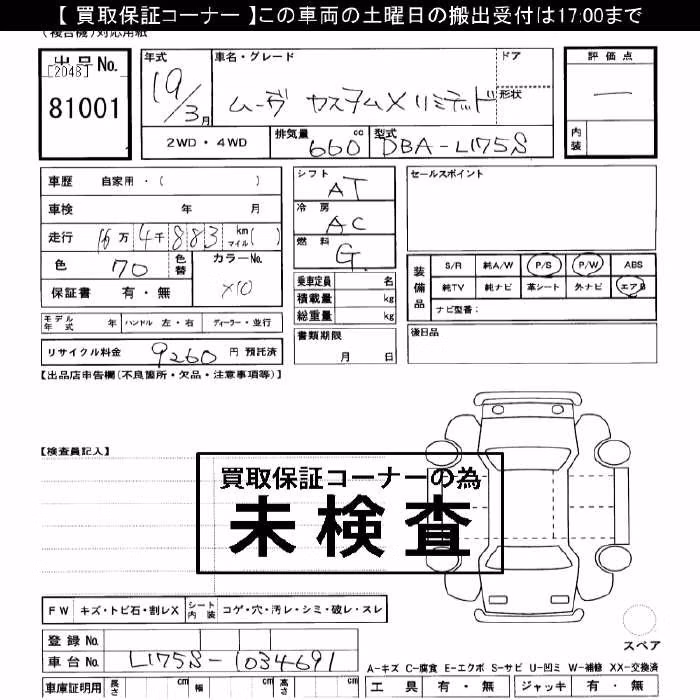 【 買取保証コーナー 】この車両の土曜日の搬出受付は17:00まで
(複合機)対応用紙
出品No.
[2048]
81001
年式
19/3月
車名・グレード
ムーヴ カスタムX リミテッド
ドア
形状
評価点
—
内装
2WD・4WD
排気量 660 cc
型式 DBA-L175S
車歴 自家用・( )
車検 年 月
走行 16万4千883 km マイル( )
色 70 色替
カラーNo. X10
保証書 有・無
シフト AT
冷房 AC
燃料 G
乗車定員 名
積載量 kg
総重量 kg
セールスポイント
装備品
S/R 純A/W P/S P/W ABS
純TV 純ナビ 革シート 外ナビ エアB
ナビ型番:
モデル年式 年 ハンドル 左・右 ディーラー・並行
リサイクル料金 9260 円 預託済
書類期限
月 日
後日品
【出品店申告欄(不良箇所・欠品・注意事項等)】
【検査員記入】
買取保証コーナーの為
未検査
FW キズ・トビ石・割レX シート内装 コゲ・穴・汚レ・シミ・破レ・スレ
スペア
登録No.
車台No. L175S-1034691
A-キズ C-腐食 E-エクボ S-サビ U-凹ミ W-補修 XX-交換済
車庫証明用 長さ cm 幅 cm 高さ cm
工具 有・無 ジャッキ 有・無